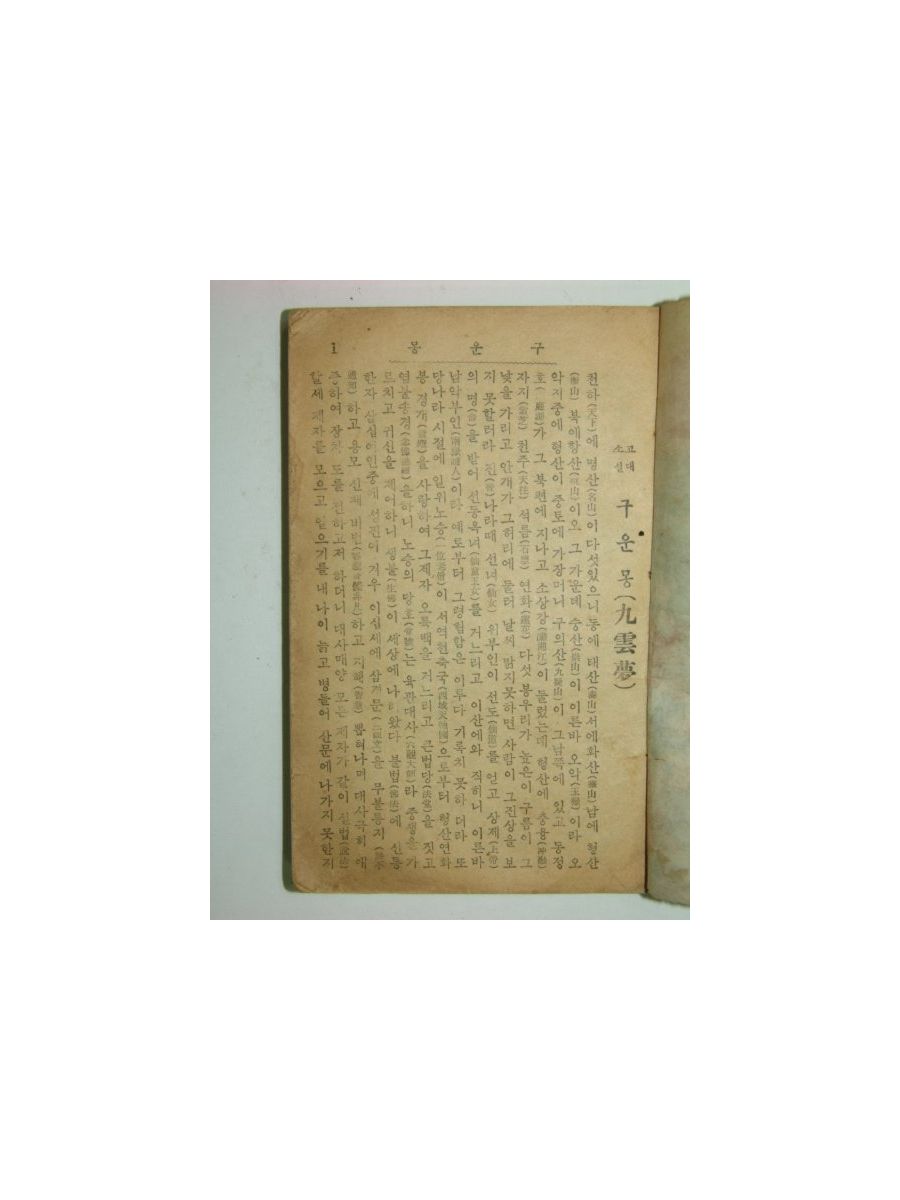 구 운 몽 1
고대
소설
구 운 몽 (九雲夢)
천하(天下)에 명산(名山)이 다섯있으니 동에 태산(泰山) 서에화산(華山) 남에 형산
(衡山) 북에항산(恒山)이오 그 가운데 숭산(嵩山)이 이른바 오악이라 오
악지중에 형산이 중토에 가장머니 구의산(九疑山)이 그남쪽에 있고 동정
호(洞庭湖)가 그 북편에 지나고 소상강(瀟湘江)이 둘렀는데 형산에 축융(祝融)
자지 천주(天柱) 석름(石廩) 연화(蓮花) 다섯 봉우리가 높은이 구름이 그
낯을 가리고 안개가 그허리에 둘러 날씨 맑지못하면 사람이 그진상을 보
지 못할러라 진(晉)나라때 선녀(仙女) 위부인이 선도(仙道)를 얻고 상제(上帝)
의 명(命)을 받어 선동옥녀(仙童玉女)를 거느리고 이산에와 직히니 이른바
남악부인(南嶽夫人)이라 예로부터 그령험함은 이루다 기록지 못하 더라 또
당나라 시절에 일위노승(一位老僧)이 서역천축국(西域天竺國)으로부터 형산연화
봉 경개(景槪)을 사랑하여 그제자 오륙백을 거느리고 큰법당(法堂)을 짓고
염불송경을 하니 노승의 당호(堂號)는 육관대사(六觀大師)라 중생을 가
르치고 귀신을 제어하니 생불(生佛)이 세상에 나려왔다 불법(佛法)에 신통
한자 삼십여인중에 성진이 겨우 이십세에 삼경문을 무불통지
하고 용모 신채 비범하고 지혜(智慧) 뽑혀나며 대사극히 애
중하여 장차 도를 전하고저 하더니 대사매양 모든 제자가 같이 설법(說法)
할세 제자를 모으고 일으기를 내 나이 늙고 병들어 산문에 나가지 못한지